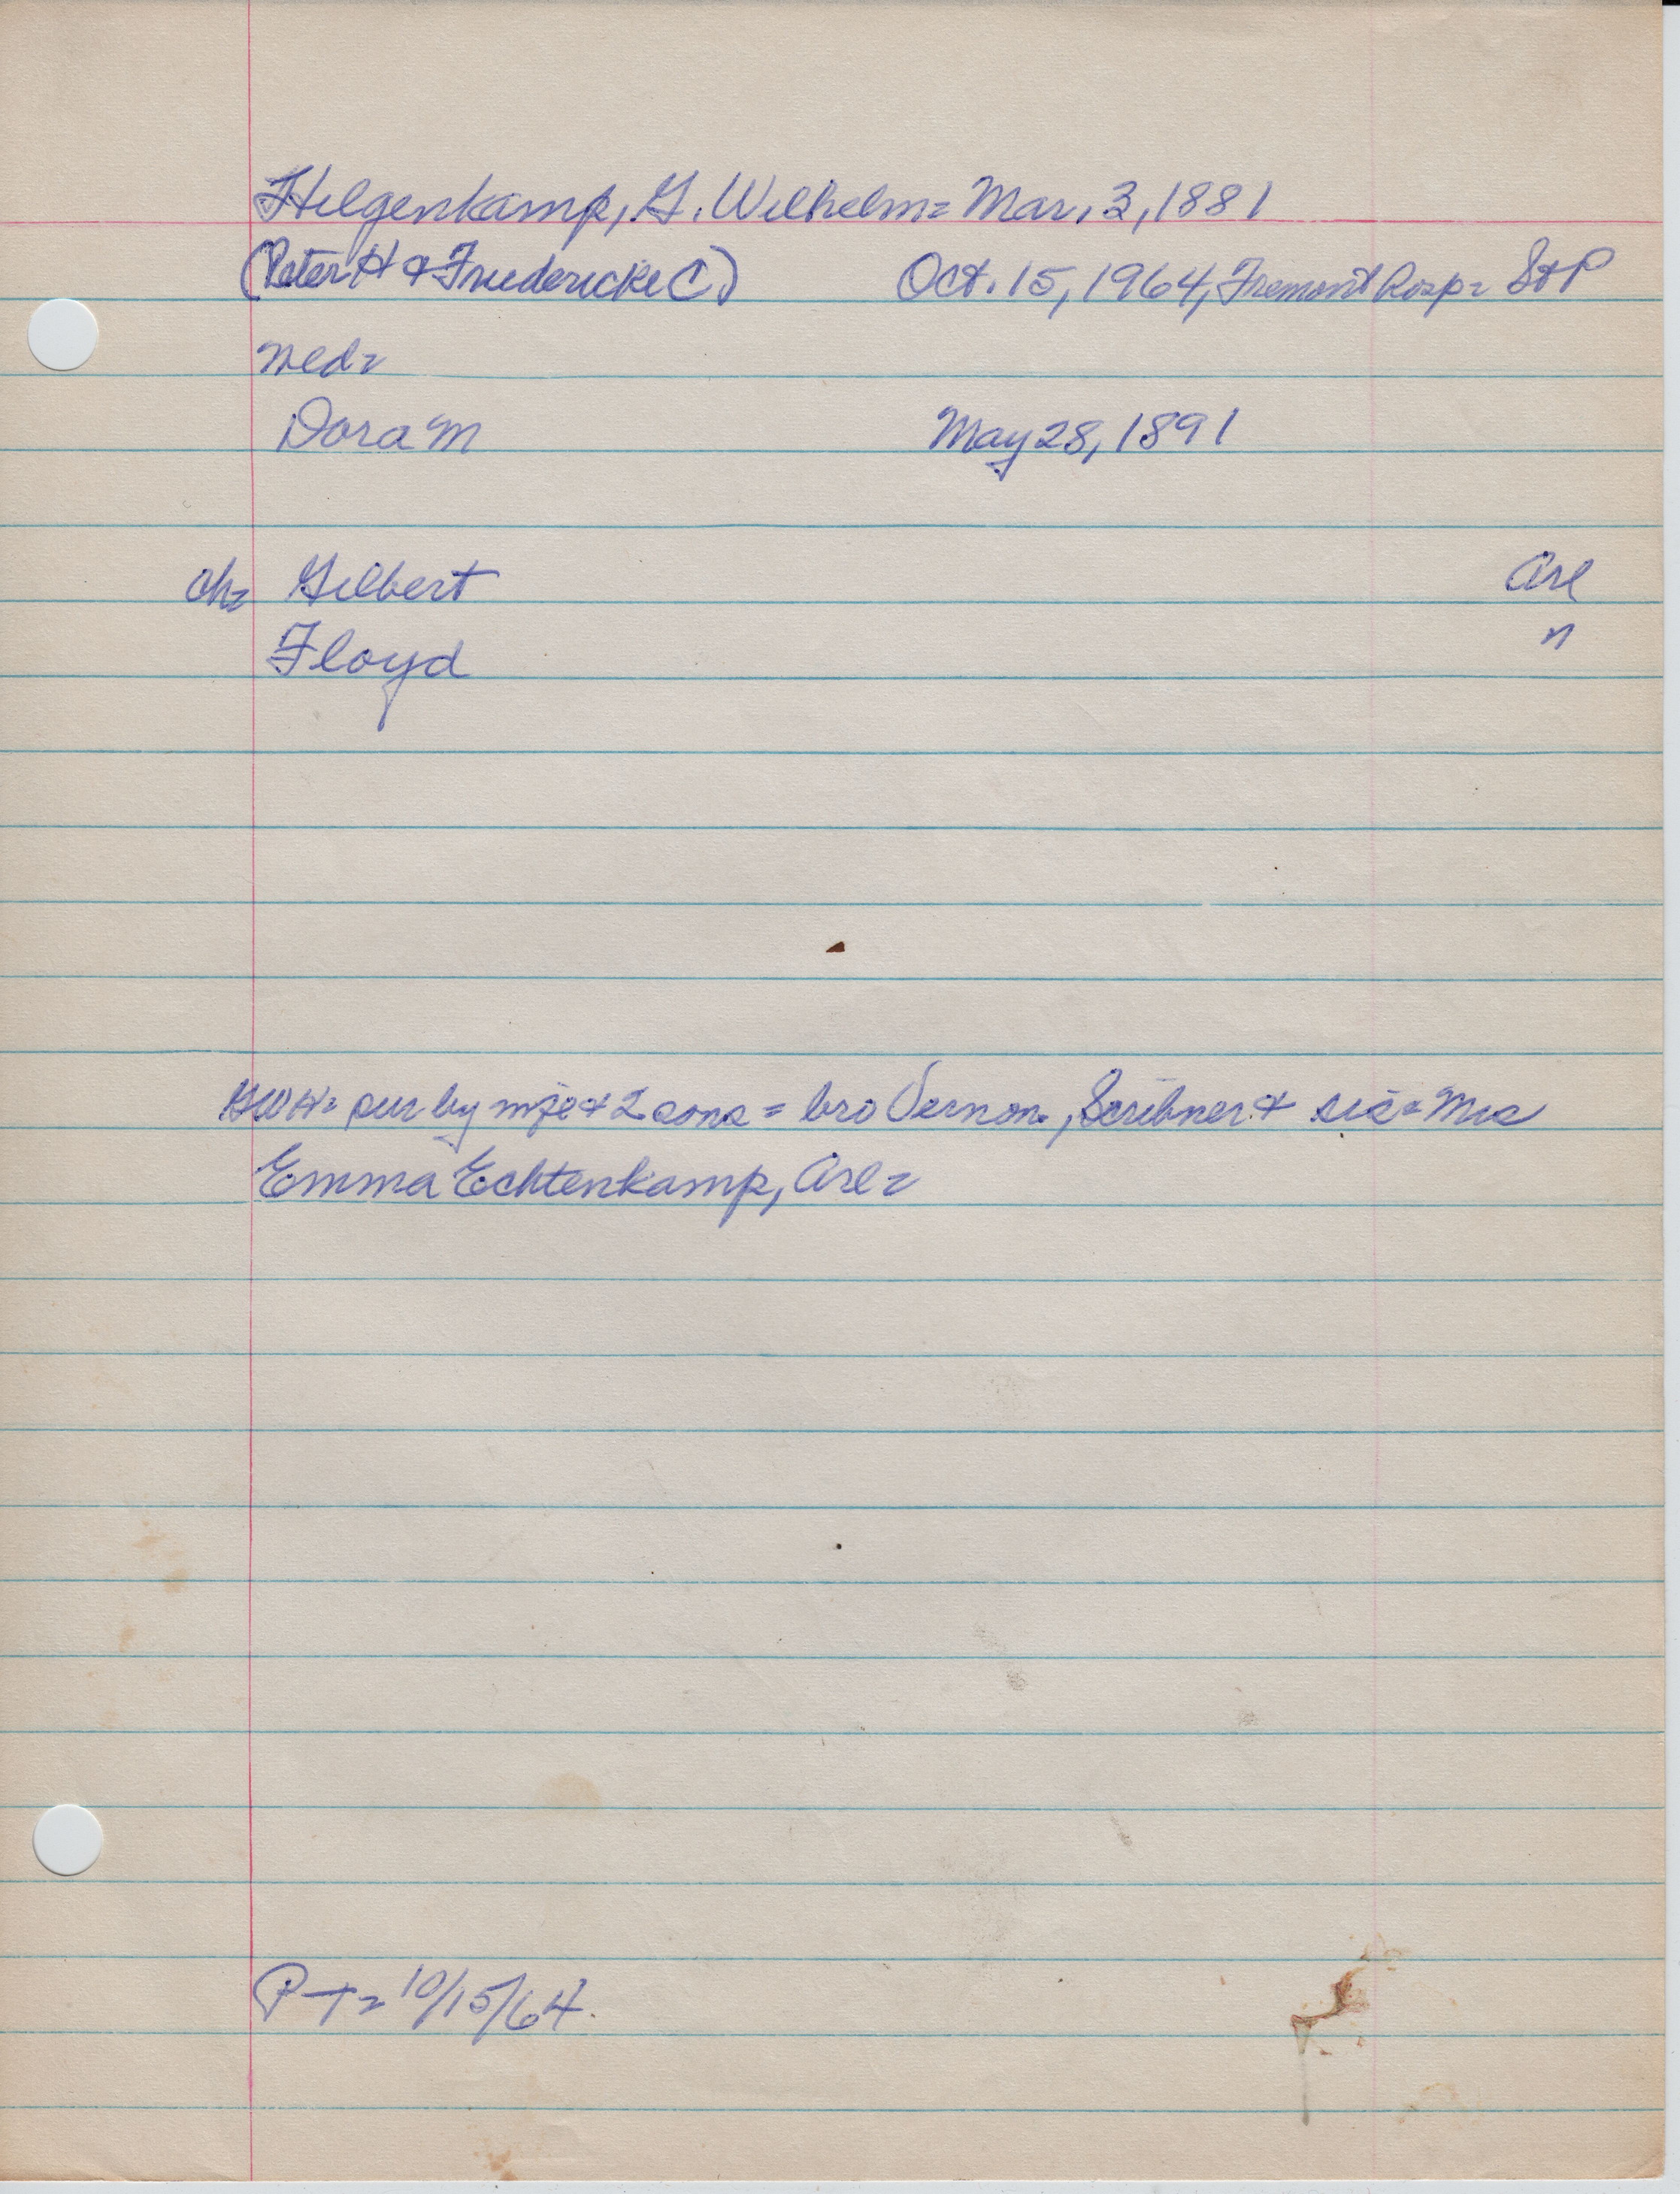 Hilgenkamp, G. Wilhelm= Mar, 3, 1881
(Peter H & Friedericke C) Oct. 15, 1964, Fremont Hosp= St P
Wed=
Dora M May 28, 1891
ch= Gilbert Arl
Floyd "
GWH= sur by wife & 2 sons = bro Vernon, Scribner & sis= Mrs
Emma Echtenkamp, Arl=
P-T= 10/15/64.